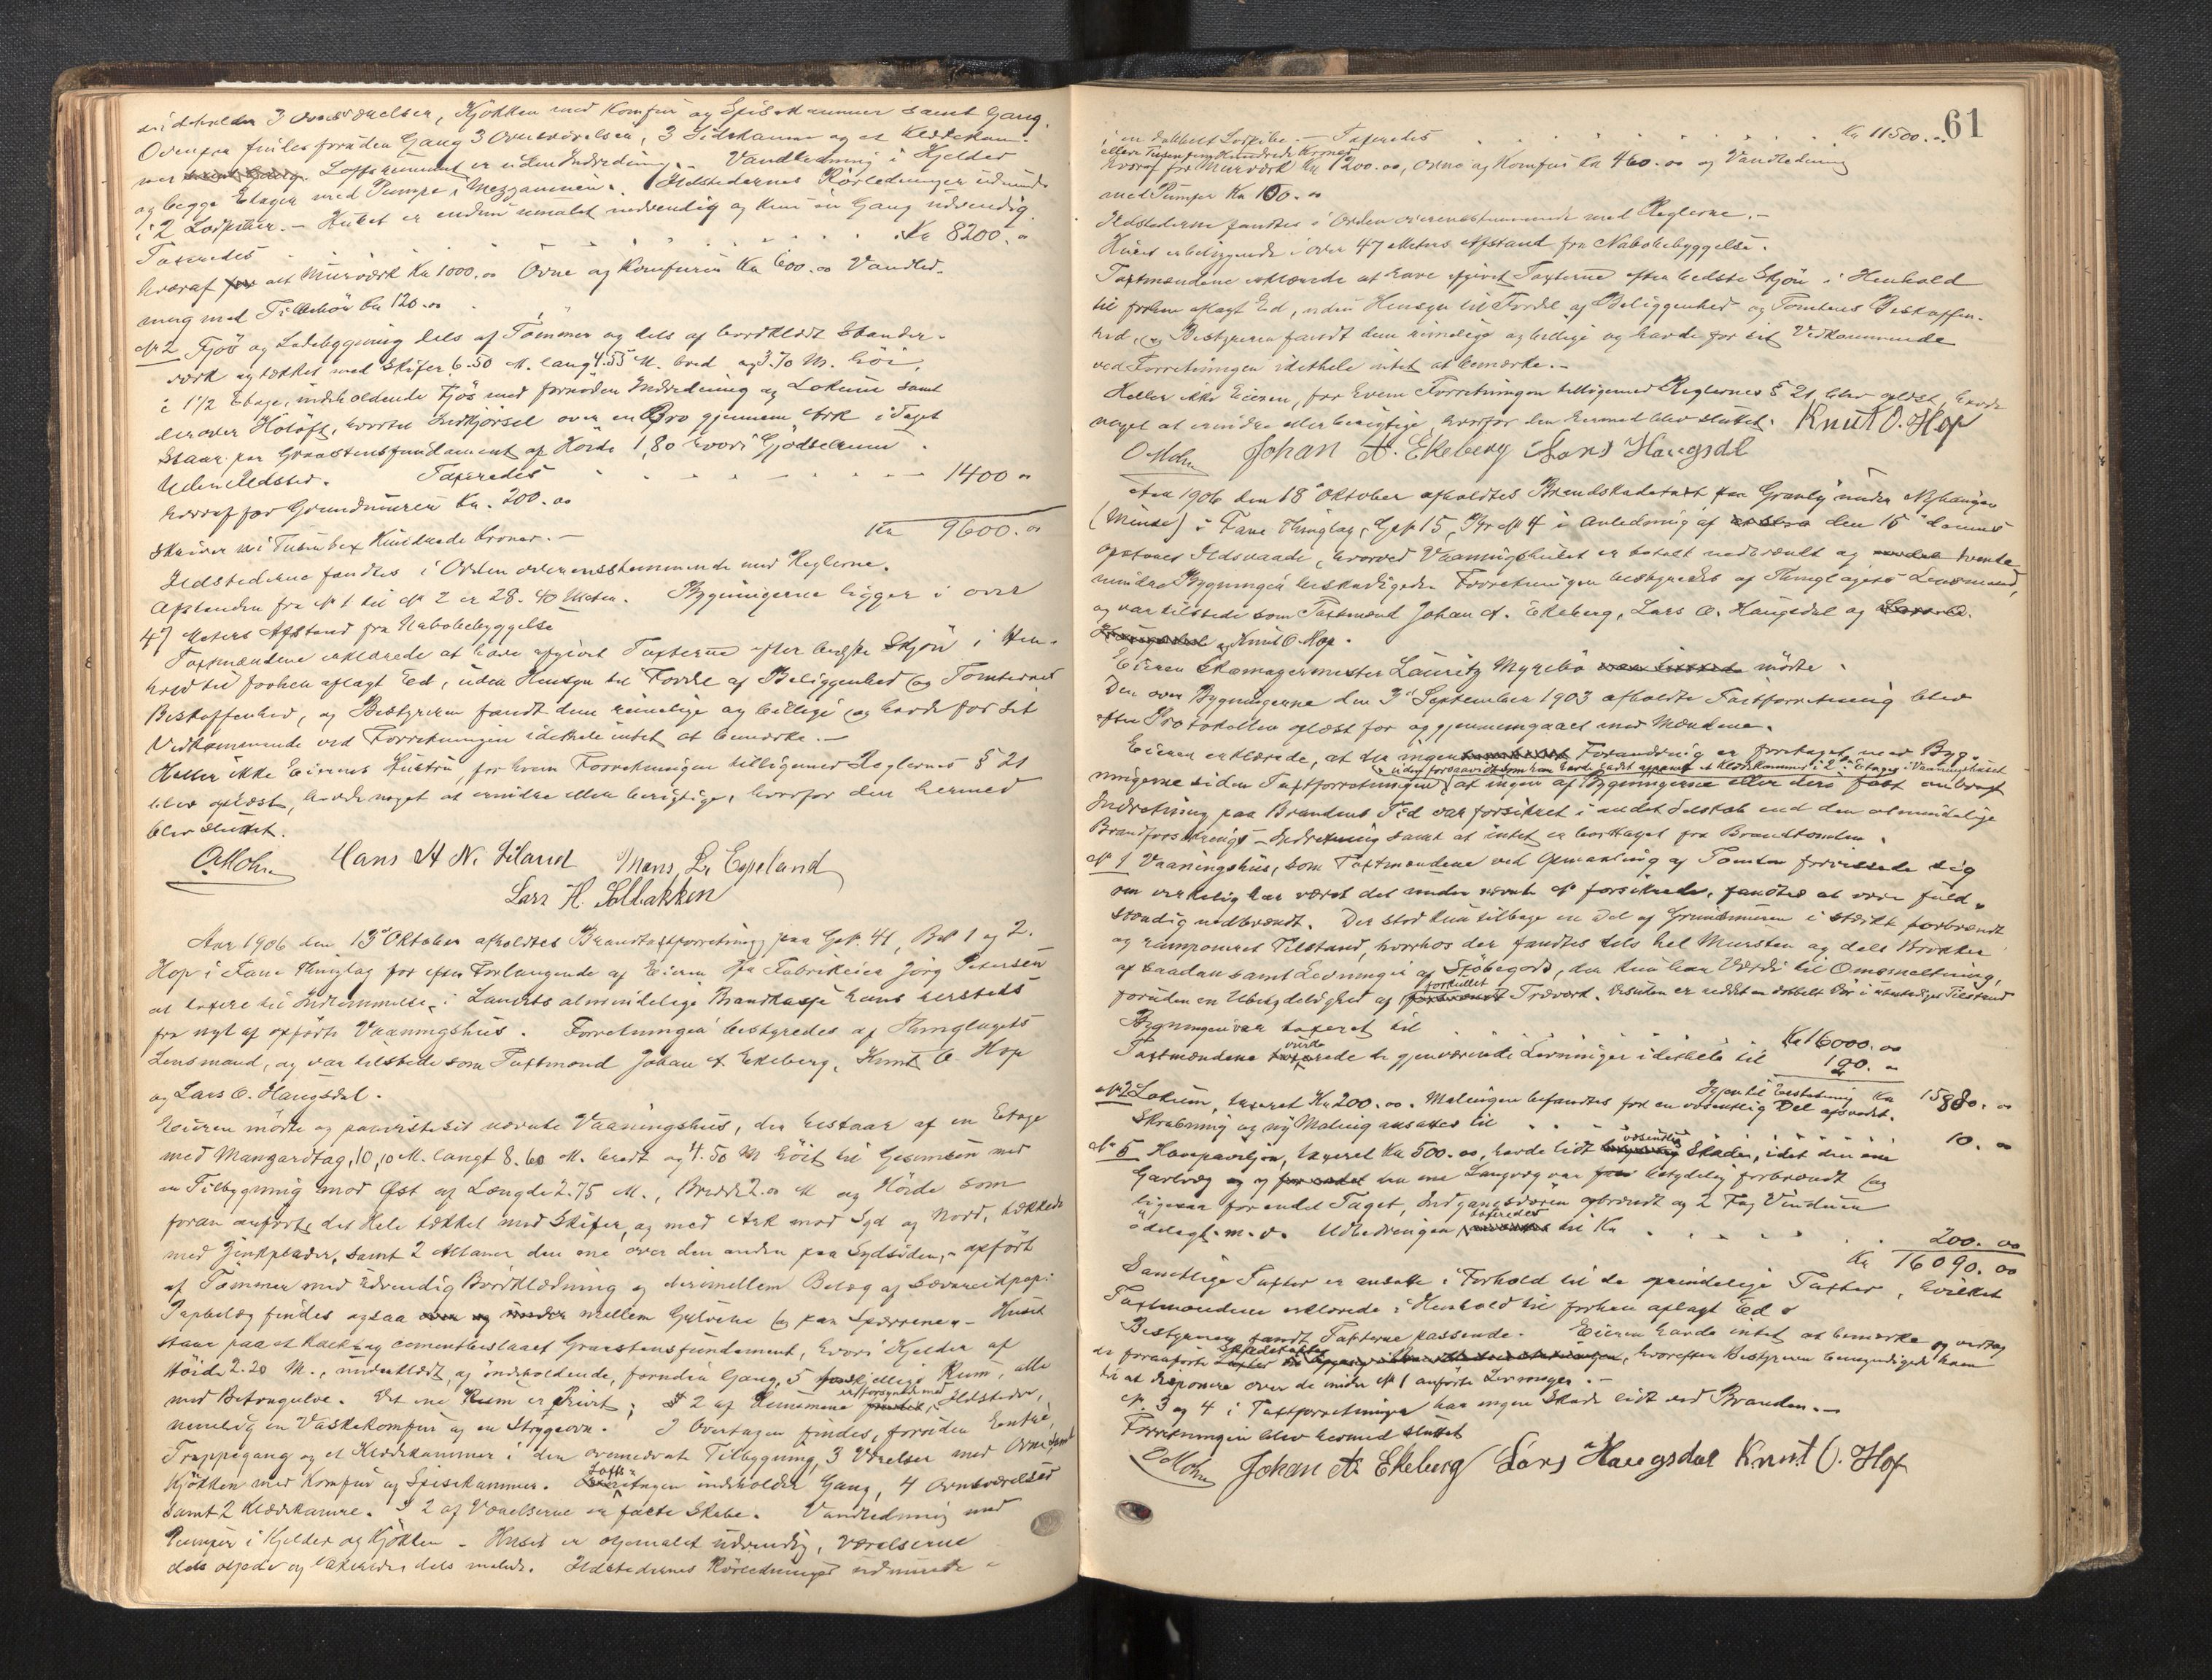 indeholder 3 Ovnsværelser, Kjökken med Komfur og Spiskammer samt Gang.
Ovenpaa findes foruden Gang 3 Ovnsværelser, 3 Sidekamre og et Klædekam-
mer Loftsrummet er uden Indredning. Vandledning i Kjelder
og begge Etager med Pumpe i Mezzaninen. Ildstedernes Rörledninger udmunde
i 2 Lodpiber. - Huset er endnu umalet indvendig og kun en Gang udvendig.
Taxeredes . . . . . Kr 8200.00
hvoraf for alt Murværk Kr 1000.00 Ovne og Komfurer Kr 600.00 Vandled-
ning med Tilbehör Kr 120.00
No 2 Fjös og Ladebygning dels af Tömmer og dels af bordklædt Stander-
værk og tækket med Skifer 6.50 M. lang 4.55 M. bred og 3.70 M. höi,
i 1 1/2 Etage, indeholdende Fjös med fornöden Indredning og Lokum samt
derover Höloft, hvortil Indkjörsel over en Bro gjennem Ark i Taget
Staar paa Graastensfundament af Höide 1,80 hvori Gjödselrum.
Uden Ildsted. Taxeredes . . . . . 1400 00
hvoraf for Grundmuren Kr. 200.00
Kr 9600.00
Skriver ni Tusind sex Hundrede Kroner. -
Ildstederne fandtes i Orden overensstemmende med Reglerne.
Afstanden fra No 1 til No 2 er 28.40 Meter. Bygningerne ligger i over
47 Meters Afstand fra Nabobebyggelse
Taxmændene erklærede at have afgivet Taxterne efter bedste Skjön i Hen-
hold til forhen aflagt Ed, uden Hensyn til Fordel af Beliggenhed og Tomternes
Beskaffenhed, og Bestyreren fandt dem rimelige og billige og havde for sit
Vedkommende ved Forretningen idethele intet at bemærke. -
Heller ikke Eierens Hustru, for hvem Forretningen tilligemed Reglernes § 21
blev oplæst, havde noget at erindre eller berigtige, hvorfor den hermed
blev sluttet.
OMohn Hans H N. Liland Mons L. Espeland
Lars H. Solbakken
Aar 1906 den 13de Oktober afholdtes Brandtaxtforretning paa Gr. 41, Br 1 og 2.
Hop i Fane Thinglag for efter Forlangende af Eieren Hr Fabrikeier Jörg Petersen
at taxere til Indlemmelse i Landets almindelige Brandkasse hans hersteds
fra nyt af opförte Vaaningshus. Forretningen bestyredes af Thinglagets
Lensmand, og var tilstede som Taxtmænd Johan A. Ekeberg, Knut O. Hop
og Lars O. Haugsdal.
Eieren mödte og paaviste sit nævnte Vaaningshus, der bestaar af en Etage
med Mansardtag, 10,10 M. langt 8.60 M. bredt og 4.50 M höit til Gesimsen med
en Tilbygning mod Öst af Længde 2.75 M., Bredde 2.00 M og Höide som
foran anfört, det Hele tækket med Skifer, og med Ark mod Syd og Nord, tækkede
med Zinkplader, samt 2 Altaner den ene over den anden paa Sydsiden, - opfört
af Tömmer med udvendig Bordklædning og derimellem Belæg af
Papbelæg findes ogsaa mellem Gulvene og paa Sperrene. - Huset
staar paa et Kalk og cementbeslaaet Graastensfundament, hvori Kjelder af
Höide 2.20 M., underklædt, og indeholdende, foruden Gang, 5 forskjellige Rum, alle
med Betongulve. Det ene Rum er Privet; I 2 af Rummene er forsynet med Ildsteder,
nemlig en Vaskekomfur og en Strygeovn. I 1ste Etagen findes, foruden Entré,
Trappegang og et Klædekammer i den ovennævnte Tilbygning, 3 Værelser med Ovne samt
Kjökken med Komfur og Spisekammer. Lofts-Etagen indeholder Gang, 4 Ovnsværelser
samt 2 Klædekamre. I 2 af Værelserne er faste Skabe. Vandledning med
Pumper i Kjelder og Kjökken - Huset er oljemalet udvendig, Værelserne
dels oljede og lakerede, dels malede. Ildstedernes Rörledninger udmunde
61
i en dobbelt Lodpibe. - Taxeredes . . . . . Kr 11500.00
elleve Tusind fem Hundrede Kroner
hvoraf for Murværk Kr 1200.00, Ovne og Komfur Kr 460.00 og Vandledning
med Pumper Kr 100.00
Ildstederne fandtes i Orden overensstemmende med Reglerne. -
Huset er beliggende i over 47 Meters Afstand fra Nabobebyggelse.
Taxtmændene erklærede at have afgivet Taxterne efter bedste Skjön i Henhold
til forhen aflagt Ed, uden Hensyn til Fordel af Beliggenhed og Tomtens Beskaffen-
hed, og Bestyreren fandt dem rimelige og billige og havde for sit Vedkommende
ved Forretningen idethele intet at bemærke. -
Heller ikke Eieren, for hvem Forretningen tilligemed Reglernes § 21 blev oplæst, havde
noget at erindre eller berigtige, hvorfor den hermed blev sluttet. Knut O. Hop
OMohn Johan A. Ekeberg Lars Haugsdal
Aar 1906 den 18de Oktober afholdtes Brandskadetaxt paa "Granly" under Nyhaugen
(Minde) i Fane Thinglag, Gr 15, Br No 4 i Anledning af den 15de dennes
opstaaet Ildsvaade, hvorved Vaaningshuset er totalt nedbrændt og tvende
mindre Bygninger beskadigede. Forretningen bestyredes af Thinglagets Lensmand,
og var tilstede som Taxtmænd Johan A. Ekeberg, Lars O. Haugsdal og Lars O.
Haugsdal og Knut O. Hop.
Eieren Skomagermester Lauritz Myrebö mödte.
Den over Bygningerne den 3de September 1903 afholdte Taxtforretning blev
efter Protokollen oplæst for og gjennemgaaet med Mændene.
Eieren erklærede, at der ingen Forandring er foretaget med Byg-
uden forsaavidt som han havde ladet opsætte et Klædekammer i 2den Etage i Vaaningshuset
ningerne siden Taxtforretningen, at ingen af Bygningerne eller dere fast anbragt
Indretning paa Brandens Tid var forsikret i andet Selskab end den almindelige
Brandforsikrings-Indretning samt at intet er borttaget fra Brandtomten.
No 1 Vaaningshus, som Taxtmændene ved Opmaaling af Tomten forvissede sig
om virkelig har været det under nævnte No forsikrede, fandtes at være fuld-
stændig nedbrændt. Der stod kun tilbage en Del af Grundmuren i stærkt forbrændt
og ramponeret Tilstand, hvorhos der fandtes dels hel Mursten og dels Brokker
af saadan samt Levninger af Stöbegods, der kun har Værdi til Omsmeltning,
foruden en Ubetydelighed af forkullet Træværk. Desuden er reddet en dobbelt Dör i ubeskadiget Tilstand
Bygningen var taxeret til . . . . Kr 16000.00
Taxtmændene vurderede de gjenværende Levninger idethele til 120.00
Igjen til Erstatning Kr 15880.00
No 2 Lokum, taxeret Kr 200.00. Malingen befandtes for en væsentlig Del afsvedet.
Skrabning og ny Maling ansattes til . . . . 10.00
No 5 Havepavillon, taxeret Kr 500.00, havde lidt væsentlig Skade, idet den ene
Gavlvæg og den ene Langvæg var betydelig forbrændt og
ligesaa for endel Taget, Indgangsdören opbrændt og 2 Fag Vinduer
ödelagt. m. v. Udbedringen taxeredes til Kr . . . . 200.00
Kr 16090.00
Samtlige Taxter er ansatte i Forhold til de oprindelige Taxter, hvilket
Taxtmændene erklærede i Henhold til forhen aflagt Ed.
Bestyreren fandt Taxterne passende. Eieren havde intet at bemærke og vedtog
de foranförte Skadetaxter, hvorefter Bestyreren bemyndigede ham
til at disponere over de under No 1 anförte Levninger. -
No 3 og 4 i Taxtforretningen har ingen Skade lidt ved Branden. -
Forretningen blev hermed sluttet
OMohn Johan A. Ekeberg Lars Haugsdal Knut O. Hop